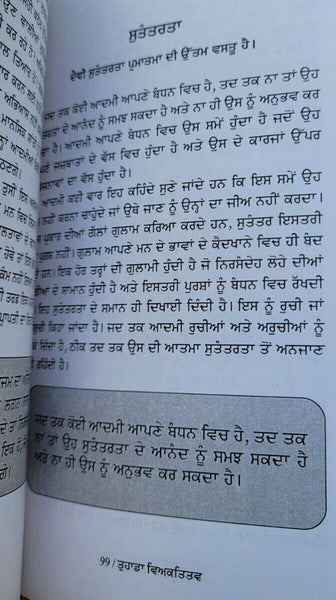 ਸੁਤੰਤਰਤਾ
ਦੈਵੀ ਸੁਤੰਤਰਤਾ ਪ੍ਰਮਾਤਮਾ ਦੀ ਉੱਤਮ ਵਸਤੂ ਹੈ।
ਜਦ ਤਕ ਕੋਈ ਆਦਮੀ ਆਪਣੇ ਬੰਧਨ ਵਿਚ ਹੈ, ਤਦ ਤਕ ਨਾ ਤਾਂ ਉਹ
ਸੁਤੰਤਰਤਾ ਦੇ ਆਨੰਦ ਨੂੰ ਸਮਝ ਸਕਦਾ ਹੈ ਅਤੇ ਨਾ ਹੀ ਉਸ ਨੂੰ ਅਨੁਭਵ ਕਰ
ਹੈ। ਆਦਮੀ ਆਪਣੇ ਬੰਧਨ ਵਿਚ ਉਸ ਸਮੇਂ ਹੁੰਦਾ ਹੈ ਜਦੋਂ ਉਹ
ਜਜ਼ਬਾਤਾਂ ਦੇ ਵੱਸ ਵਿਚ ਹੁੰਦਾ ਹੈ ਅਤੇ ਉਸ ਦੇ ਕਾਰਜਾਂ ਉੱਪਰ
ਦਾ ਵੱਸ ਹੁੰਦਾ ਹੈ।
ਆਦਮੀ ਕਈ ਵਾਰ ਇਹ ਕਹਿੰਦੇ ਸੁਣੇ ਜਾਂਦੇ ਹਨ ਕਿ ਇਸ ਸਮੇਂ ਉਹ
ਨਹੀਂ ਕਰਨਾ ਚਾਹੁੰਦੇ ਜਾਂ ਉਥੇ ਜਾਣ ਨੂੰ ਉਨ੍ਹਾਂ ਦਾ ਜੀਅ ਨਹੀਂ ਕਰਦਾ।
ਪ੍ਰਕਾਰ ਦੀਆਂ ਗੱਲਾਂ ਗੁਲਾਮ ਕਰਿਆ ਕਰਦੇ ਹਨ, ਸੁਤੰਤਰ ਇਸਤਰੀ
ਪੁਰਸ਼ ਨਹੀਂ। ਗੁਲਾਮ ਆਪਣੇ ਮਨ ਦੇ ਭਾਵਾਂ ਦੇ ਕੈਦਖਾਨੇ ਵਿਚ ਹੀ ਬੰਦ
ਹਨ। ਇਕ ਹੋਰ ਤਰ੍ਹਾਂ ਦੀ ਗੁਲਾਮੀ ਹੁੰਦੀ ਹੈ ਜੋ ਨਿਰਸੰਦੇਹ ਲੋਹੇ ਦੀਆਂ
ਦੇ ਸਮਾਨ ਹੁੰਦੀ ਹੈ ਅਤੇ ਇਸਤਰੀ ਪੁਰਸ਼ਾਂ ਨੂੰ ਬੰਧਨ ਵਿਚ ਰੱਖਦੀ
ਇਹ ਸੁਤੰਤਰਤਾ ਦੇ ਸਮਾਨ ਹੀ ਦਿਖਾਈ ਦਿੰਦੀ ਹੈ। ਇਸ ਨੂੰ ਰੁਚੀ ਜਾਂ
ਕਿਹਾ ਜਾਂਦਾ ਹੈ। ਜਦ ਤਕ ਆਦਮੀ ਰੁਚੀਆਂ ਅਤੇ ਅਰੁਚੀਆਂ ਨੂੰ
ਦਿੰਦਾ ਹੈ, ਠੀਕ ਤਦ ਤਕ ਉਸ ਦੀ ਆਤਮਾ ਸੁਤੰਤਰਤਾ ਤੋਂ ਅਨਜਾਣ
ਰਹਿੰਦੀ ਹੈ।
ਜਦ ਤਕ ਕੋਈ ਆਦਮੀ ਆਪਣੇ ਬੰਧਨ ਵਿਚ ਹੈ, ਤਦ ਤਕ
ਨਾ ਤਾਂ ਉਹ ਸੁਤੰਤਰਤਾ ਦੇ ਆਨੰਦ ਨੂੰ ਸਮਝ ਸਕਦਾ ਹੈ
ਅਤੇ ਨਾ ਹੀ ਉਸ ਨੂੰ ਅਨੁਭਵ ਕਰ ਸਕਦਾ ਹੈ।
99 / ਤੁਹਾਡਾ ਵਿਅਕਤਿਤਵ